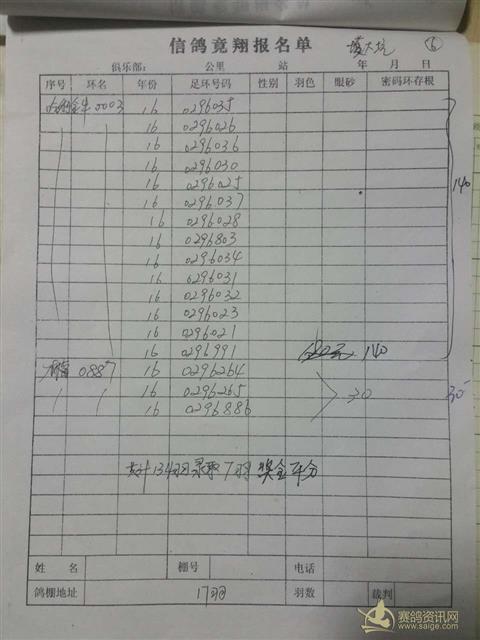 信鸽竟翔报名单
俱乐部： 公里 站 年 月 日
序号 环名 年份 足环号码 性别 羽色 眼砂 密码环存根
0003 16 0296035
16 0296026
16 0296036
16 0296030
16 0296025
16 0296037
16 0296028
16 0296803
16 0296034
16 0296031
16 0296032
16 0296023
16 0296021
16 0296991 140
140
0887 16 0296264
16 0296265 30 30
16 0296886
共计134羽录取7羽 奖金平分
姓名 棚号 电话
鸽棚地址 17羽 羽数 裁判
赛鸽资讯网
www.saige.com